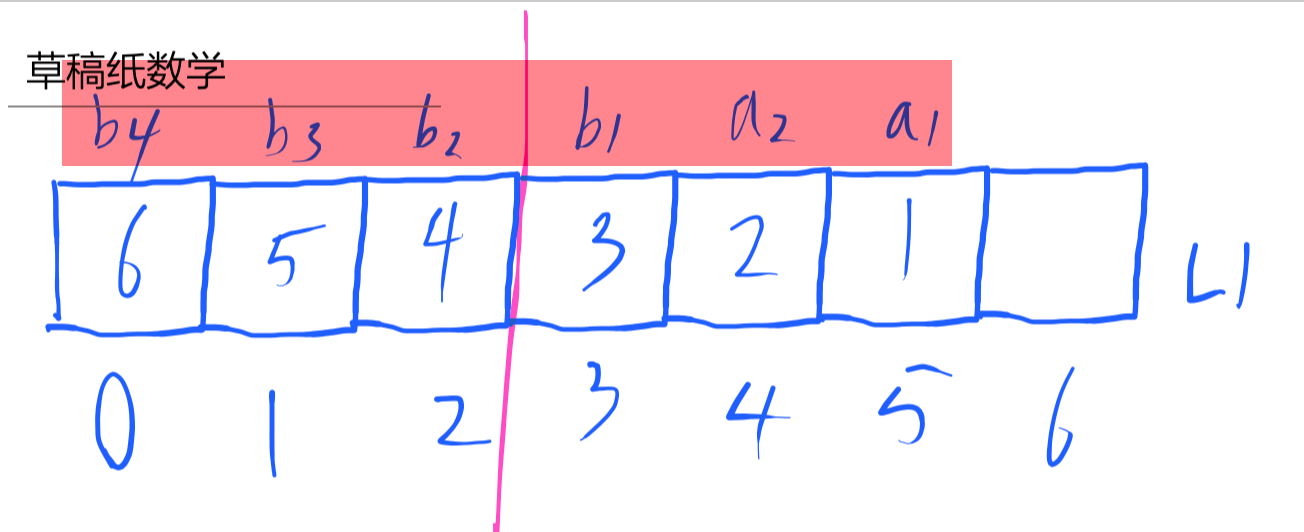 草稿纸数学
b4 b3 b2 b1 a2 a1
6 5 4 3 2 1 L1
0 1 2 3 4 5 6